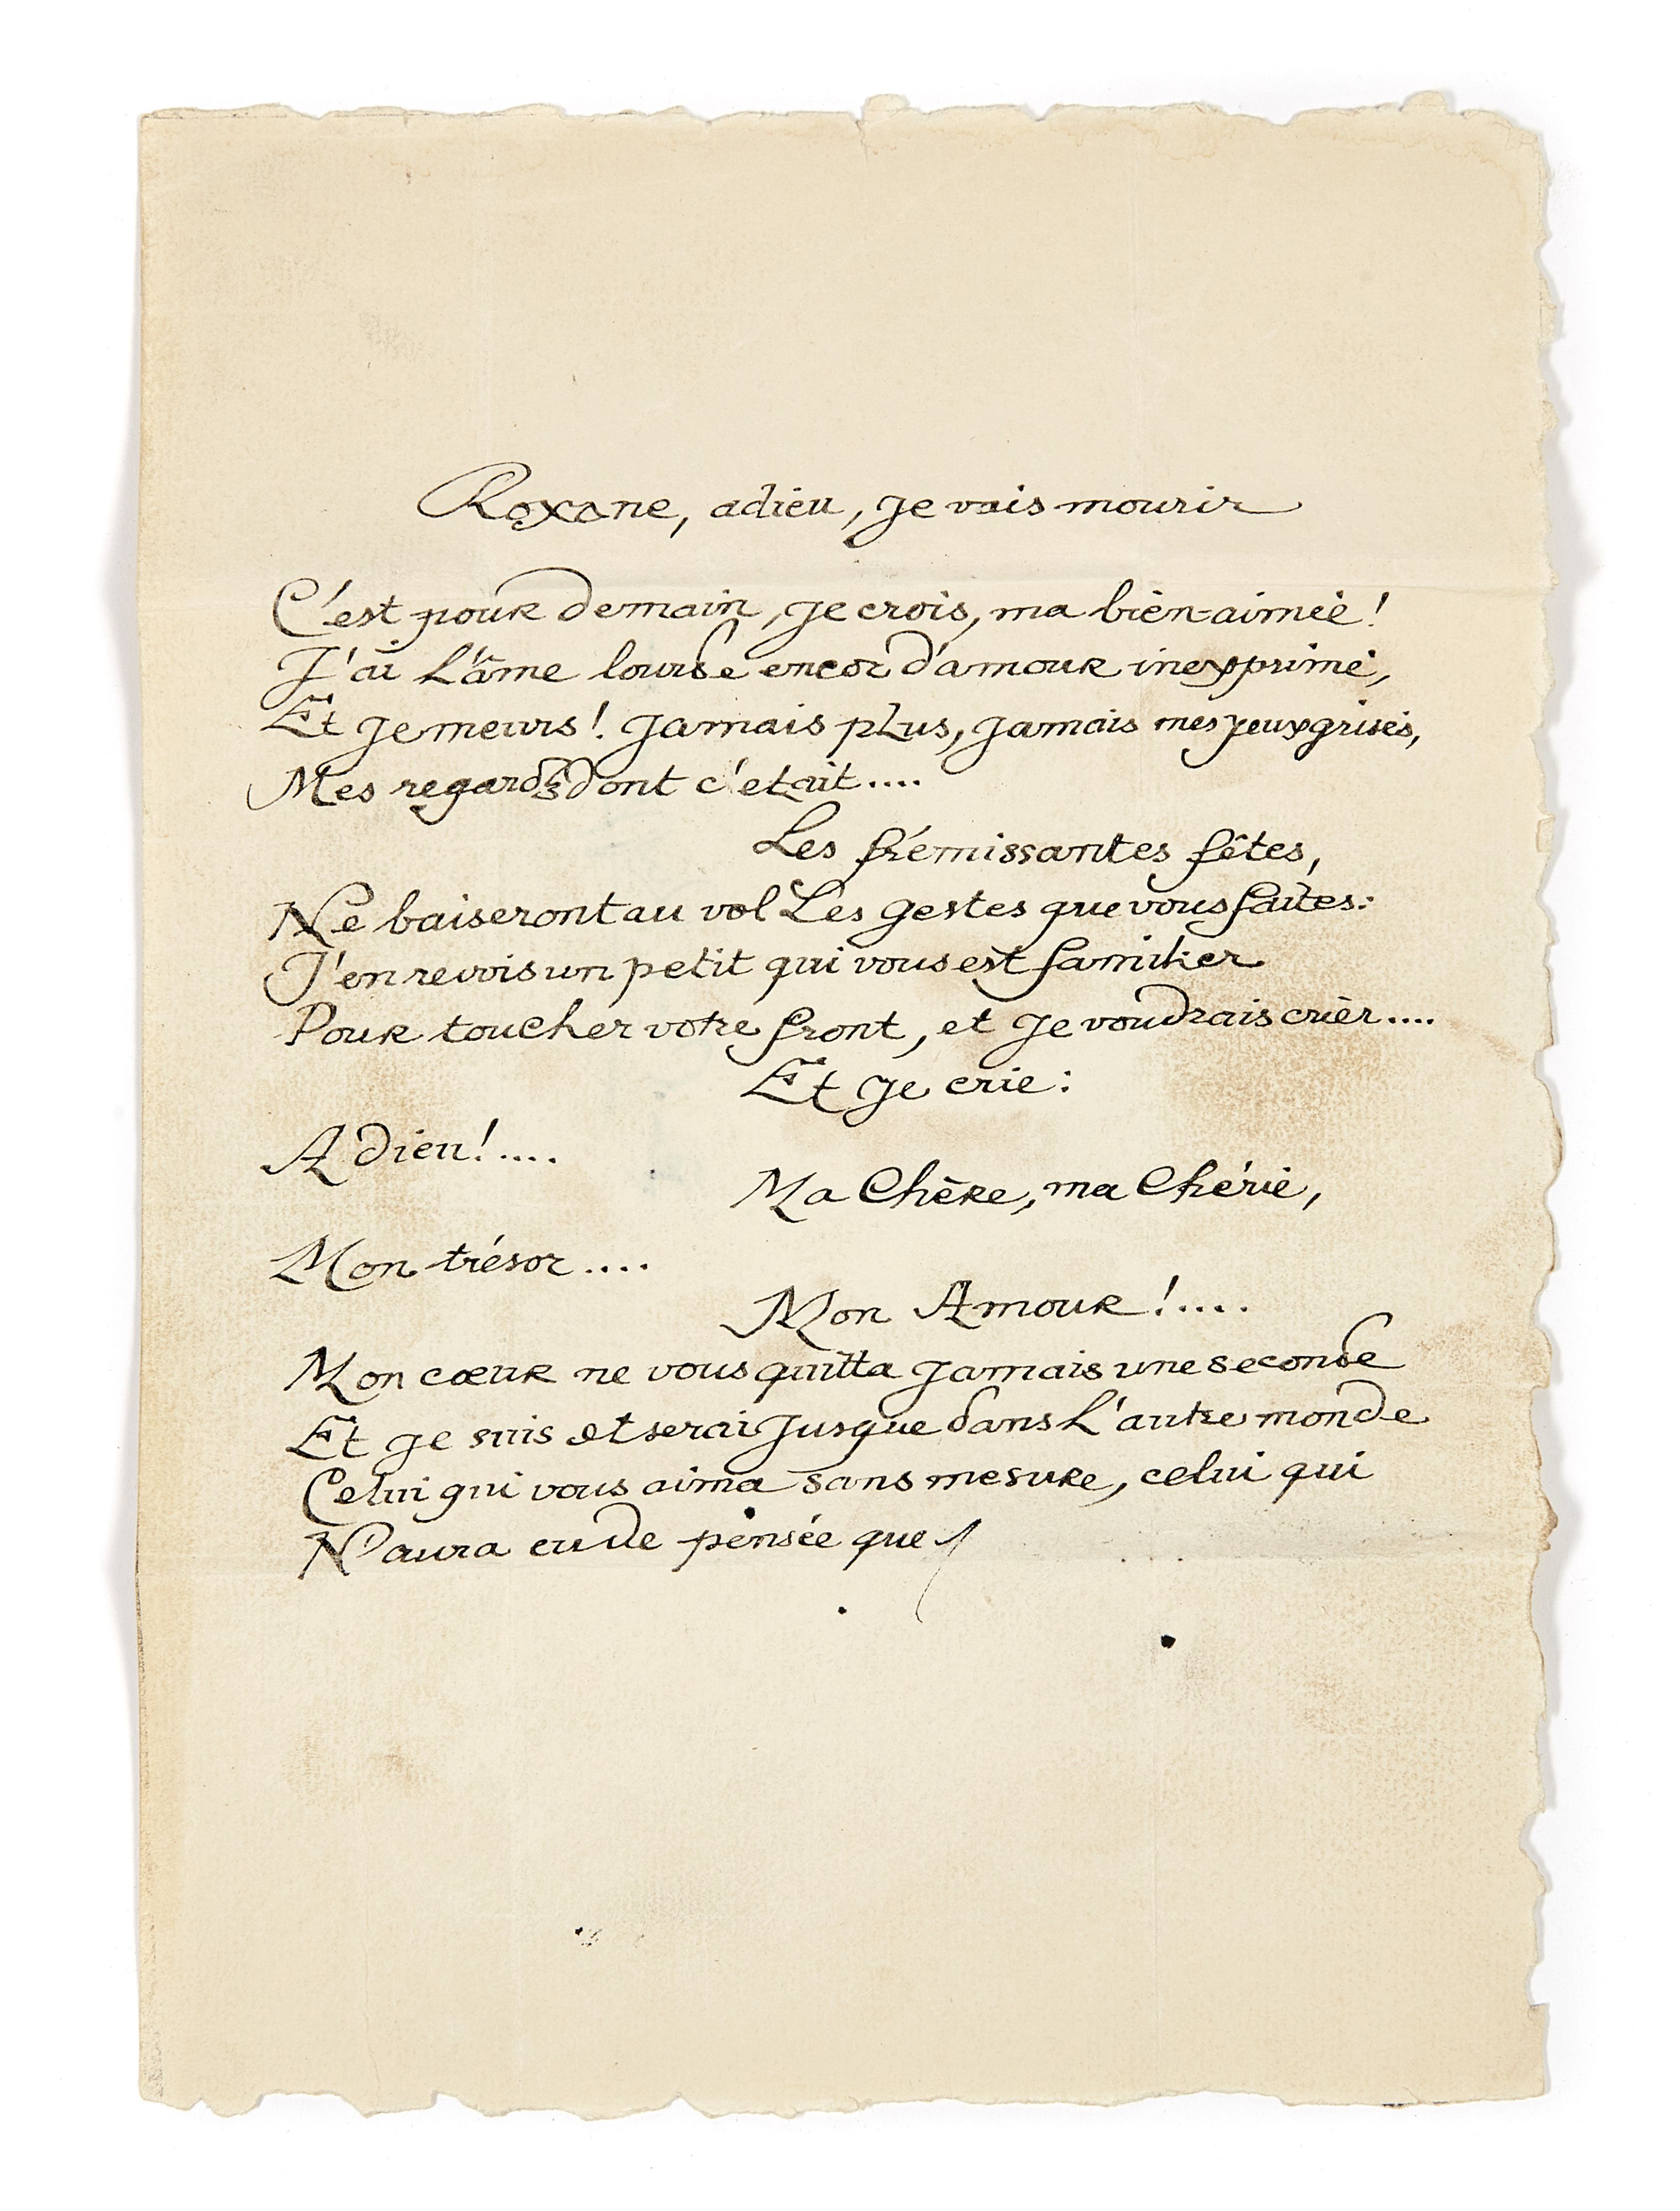 Roxane, adieu, je vais mourir
C'est pour demain, je crois, ma bien-aimée!
J'ai l'âme lourde encor d'amour inexprimé,
Et je meurs! Jamais plus, jamais mes yeux grisés,
Mes regards dont c'était....
Les frémissantes fêtes,
Ne baiseront au vol Les gestes que vous faites:
J'en revois un petit qui vous est familier
Pour toucher votre front, et je voudrais crier....
Et je crie:
Adieu!....
Ma Chère, ma Chérie,
Mon trésor....
Mon Amour!....
Mon cœur ne vous quitta jamais une seconde
Et je suis et serai jusque dans l'autre monde
Celui qui vous aima sans mesure, celui qui
N'aura eu de pensée que